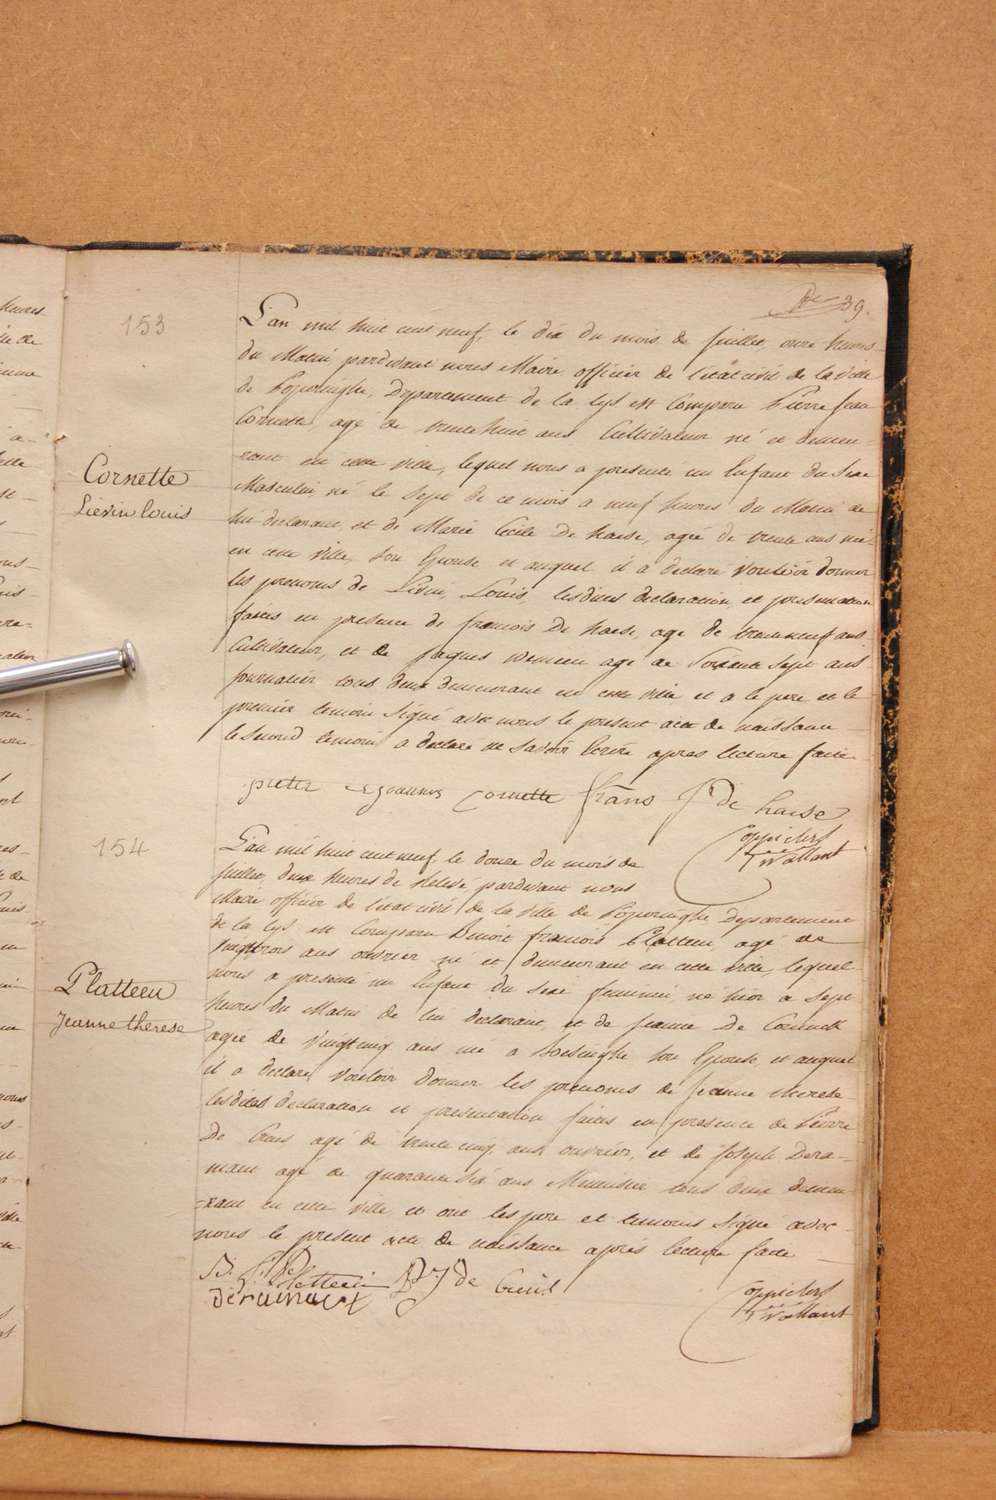 39.
153
L'an mil huit cens neuf, le dix du mois de Juillet, onze heures
du Matin pardevant nous Maire officier de l'état civil de la ville
de Poperinghe, Département de la Lys est Comparu Pierre Jean
Cornette, agé de trente huit ans Cultivateur né et demeu-
rant en cette ville, lequel nous a presenté un Enfant du Sexe
Cornette
Lievin Louis
Masculin né le Sept de ce mois a neuf heures du Matin de
lui declarant, et de Marie Cecile De haese, agée de trente ans née
en cette ville, Son Epouse et auquel il a declaré Vouloir donner
les prenoms de Lievin, Louis, lesdites declaration et presentation
faites en presence de francois De haese, agé de trente neuf ans
Cultivateur, et de Jaques agé de Soixente Sept ans
Journalier tous deux demeurant en cette ville et a le pere et le
premier temoin Signé avec nous le present acte de naissance
le Second temoin a declaré ne Savoir Ecrire après lecture faite
pieter Joannes Cornette frans De haese
154
L'an mil huit cent neuf, le douze du mois de
Juillet, deux heures de Relevé pardevant nous
Maire officier de l'état civil de la ville de Poperinghe Departement
de la Lys est Comparu Benoit francois Platteeu agé de
vingt trois ans ouvrier né et demeurant en cette ville, lequel
nous a presenté un Enfant du Sexe feminin né hier a Sept
Platteeu
Jeanne therese
heures du Matin de lui declarant, et de Jeanne De Coninck
agée de Vingt cinq ans née a Boesinghe Son Epouse, et auquel
il a declaré Vouloir donner les prenoms de Jeanne therese
lesdites declaration et presentation faites en presence de Pierre
De Cuus agé de trente cinq ans ouvrier, et de Joseph Dera-
maut agé de quarante Six ans Menuisier tous deux demeu-
rant en cette ville et ont les pere et temoins Signé avec
nous le present acte de naissance après lecture faite
B. F. Platteeuw P J de Cuus
Deramaut